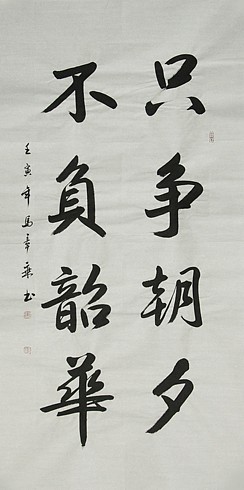 只争朝夕
不負韶華
壬寅年馬㐱乘书